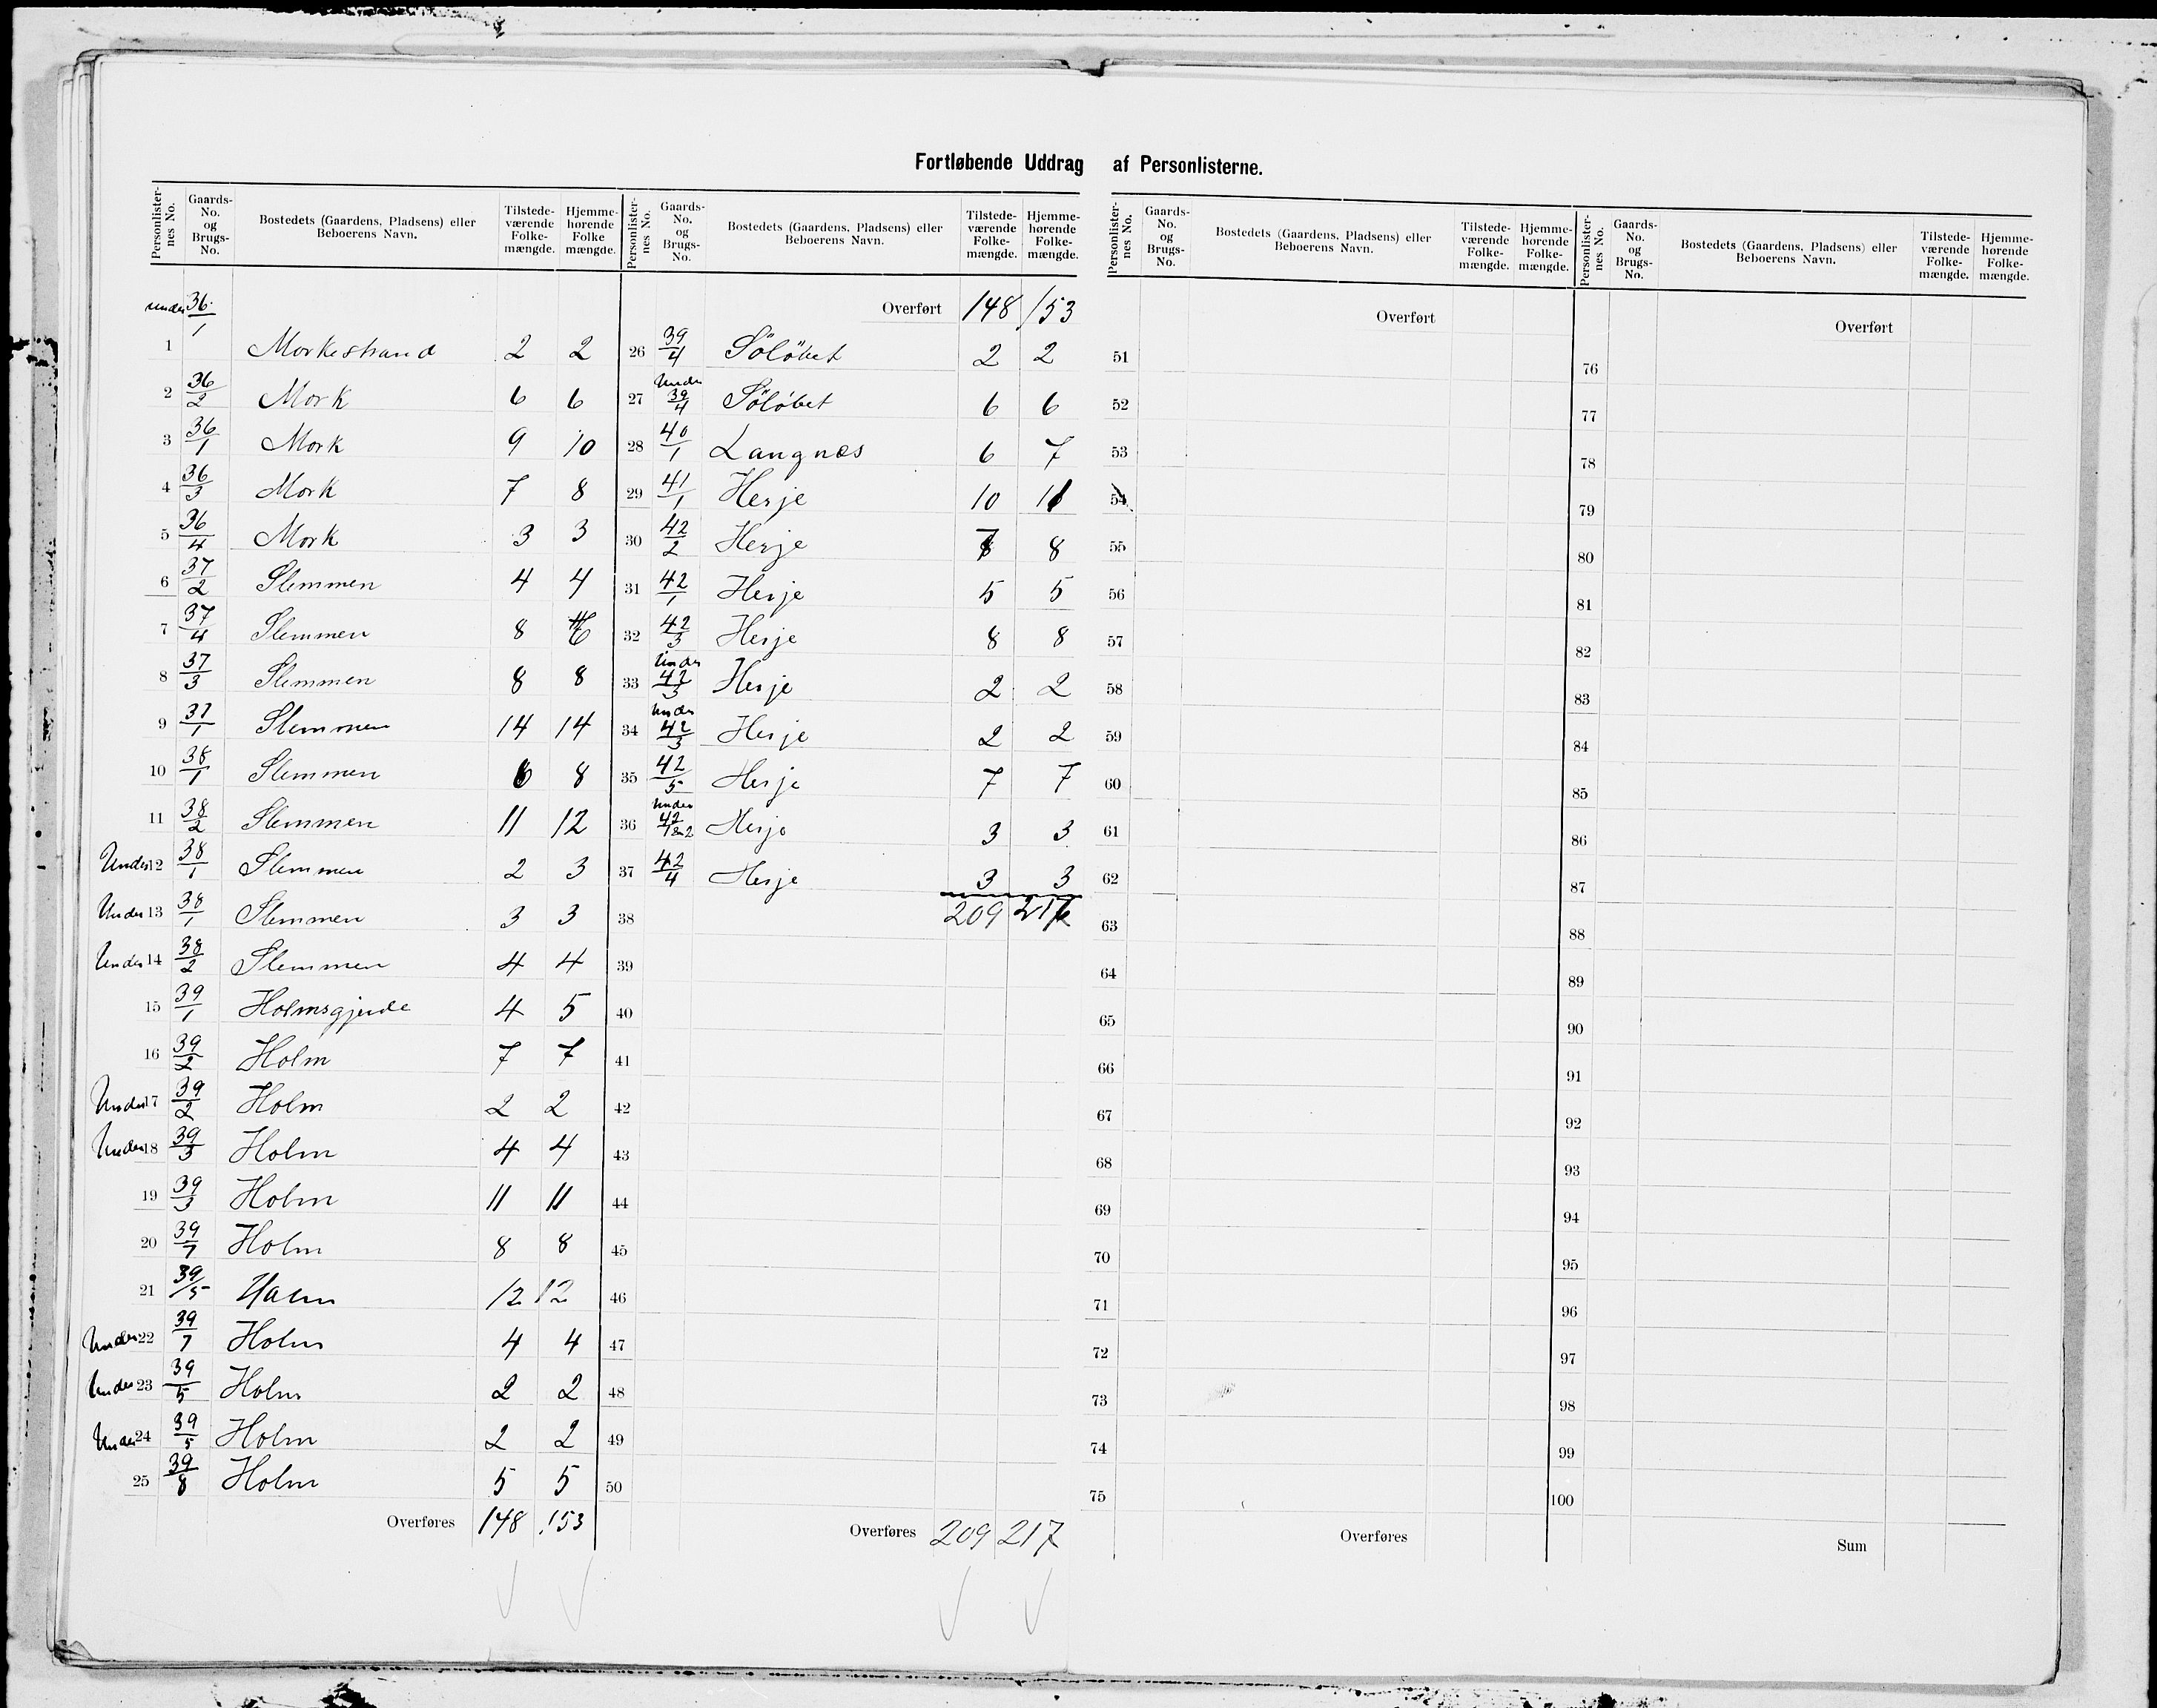 Fortløbende Uddrag af Personlisterne.
Personlisternes No. Gaards-No. og Brugs-No. Bostedets (Gaardens, Pladsens) eller Beboerens Navn. Tilstedeværende Folkemængde. Hjemmehørende Folkemængde.
under 36/1
1 Morkestrand 2 2
2 36/2 Mork 6 6
3 36/1 Mork 9 10
4 36/3 Mork 7 8
5 36/4 Mork 3 3
6 37/2 Slemmen 4 4
7 37/4 Slemmen 8
8 37/3 Slemmen 8 8
9 37/1 Slemmen 14 14
10 38/1 Slemmen 6 8
11 38/2 Slemmen 11 12
Under 12 38/1 Slemmen 2 3
Under 13 38/1 Slemmen 3 3
Under 14 38/2 Slemmen 4 4
15 39/1 Holmsgjerde 4 5
16 39/2 Holm 7 7
Under 17 39/2 Holm 2 2
Under 18 39/3 Holm 4 4
19 39/3 Holm 11 11
20 39/7 Holm 8 8
21 39/5 12 12
Under 22 39/7 Holm 4 4
Under 23 39/5 Holm 2 2
Under 24 39/5 Holm 2 2
25 39/8 Holm 5 5
Overføres 148 153
Personlisternes No. Gaards-No. og Brugs-No. Bostedets (Gaardens, Pladsens) eller Beboerens Navn. Tilstedeværende Folkemængde. Hjemmehørende Folkemængde.
Overført 148 153
26 39/4 Söløbet 2 2
27 Under 39/4 Söløbet 6 6
28 40/1 Langnæs 6 7
29 41/1 Herje 10 11
30 42/2 Herje 7 8
31 42/1 Herje 5 5
32 42/3 Herje 8 8
33 Under 42/3 Herje 2 2
34 Under 42/3 Herje 2 2
35 42/5 Herje 7 7
36 Under 42/1&2 Herje 3 3
37 42/4 Herje 3 3
38 209 217
39
40
41
42
43
44
45
46
47
48
49
50
Overføres 209 217
Personlisternes No. Gaards-No. og Brugs-No. Bostedets (Gaardens, Pladsens) eller Beboerens Navn. Tilstedeværende Folkemængde. Hjemmehørende Folkemængde.
Overført
51
52
53
54
55
56
57
58
59
60
61
62
63
64
65
66
67
68
69
70
71
72
73
74
75
Overføres
Personlisternes No. Gaards-No. og Brugs-No. Bostedets (Gaardens, Pladsens) eller Beboerens Navn. Tilstedeværende Folkemængde. Hjemmehørende Folkemængde.
Overført
76
77
78
79
80
81
82
83
84
85
86
87
88
89
90
91
92
93
94
95
96
97
98
99
100
Sum